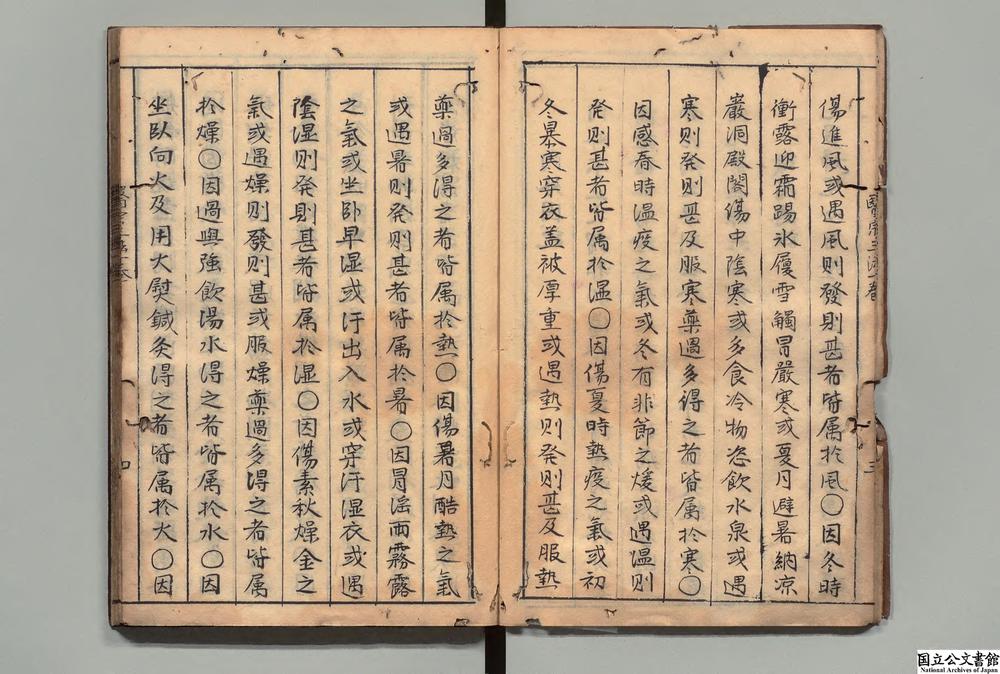 傷進風或遇風則發則甚者皆属於風〇因冬時
衝露迎霜踢氷履雪觸冒嚴寒或夏月避暑納凉
巖洞殿閣傷中陰寒或多食冷物恣飲水泉或遇
寒則発則甚及服寒藥過多得之者皆属於寒〇
因感春時温疫之氣或冬有非節之煖或遇温則
発則甚者皆属於温〇因傷夏時熱疫之氣或初
冬暴寒穿衣盖被厚重或遇熱则発則甚及服熱
三
藥過多得之者皆属於熱〇因傷暑月酷熱之氣
或遇暑則発則甚者皆属於暑〇因冒滛雨霧露
之氣或坐卧早湿或汗出入水或穿汗湿衣或遇
陰湿则発則甚者皆属於湿〇因傷素秋燥金之
氣或遇燥則發則甚或服燥藥過多得之者皆属
於燥〇因過與強飲湯水得之者皆属於水〇因
坐臥向火及用火熨鍼灸得之者皆属於火〇因
四
国立公文書館
National Archives of Japan